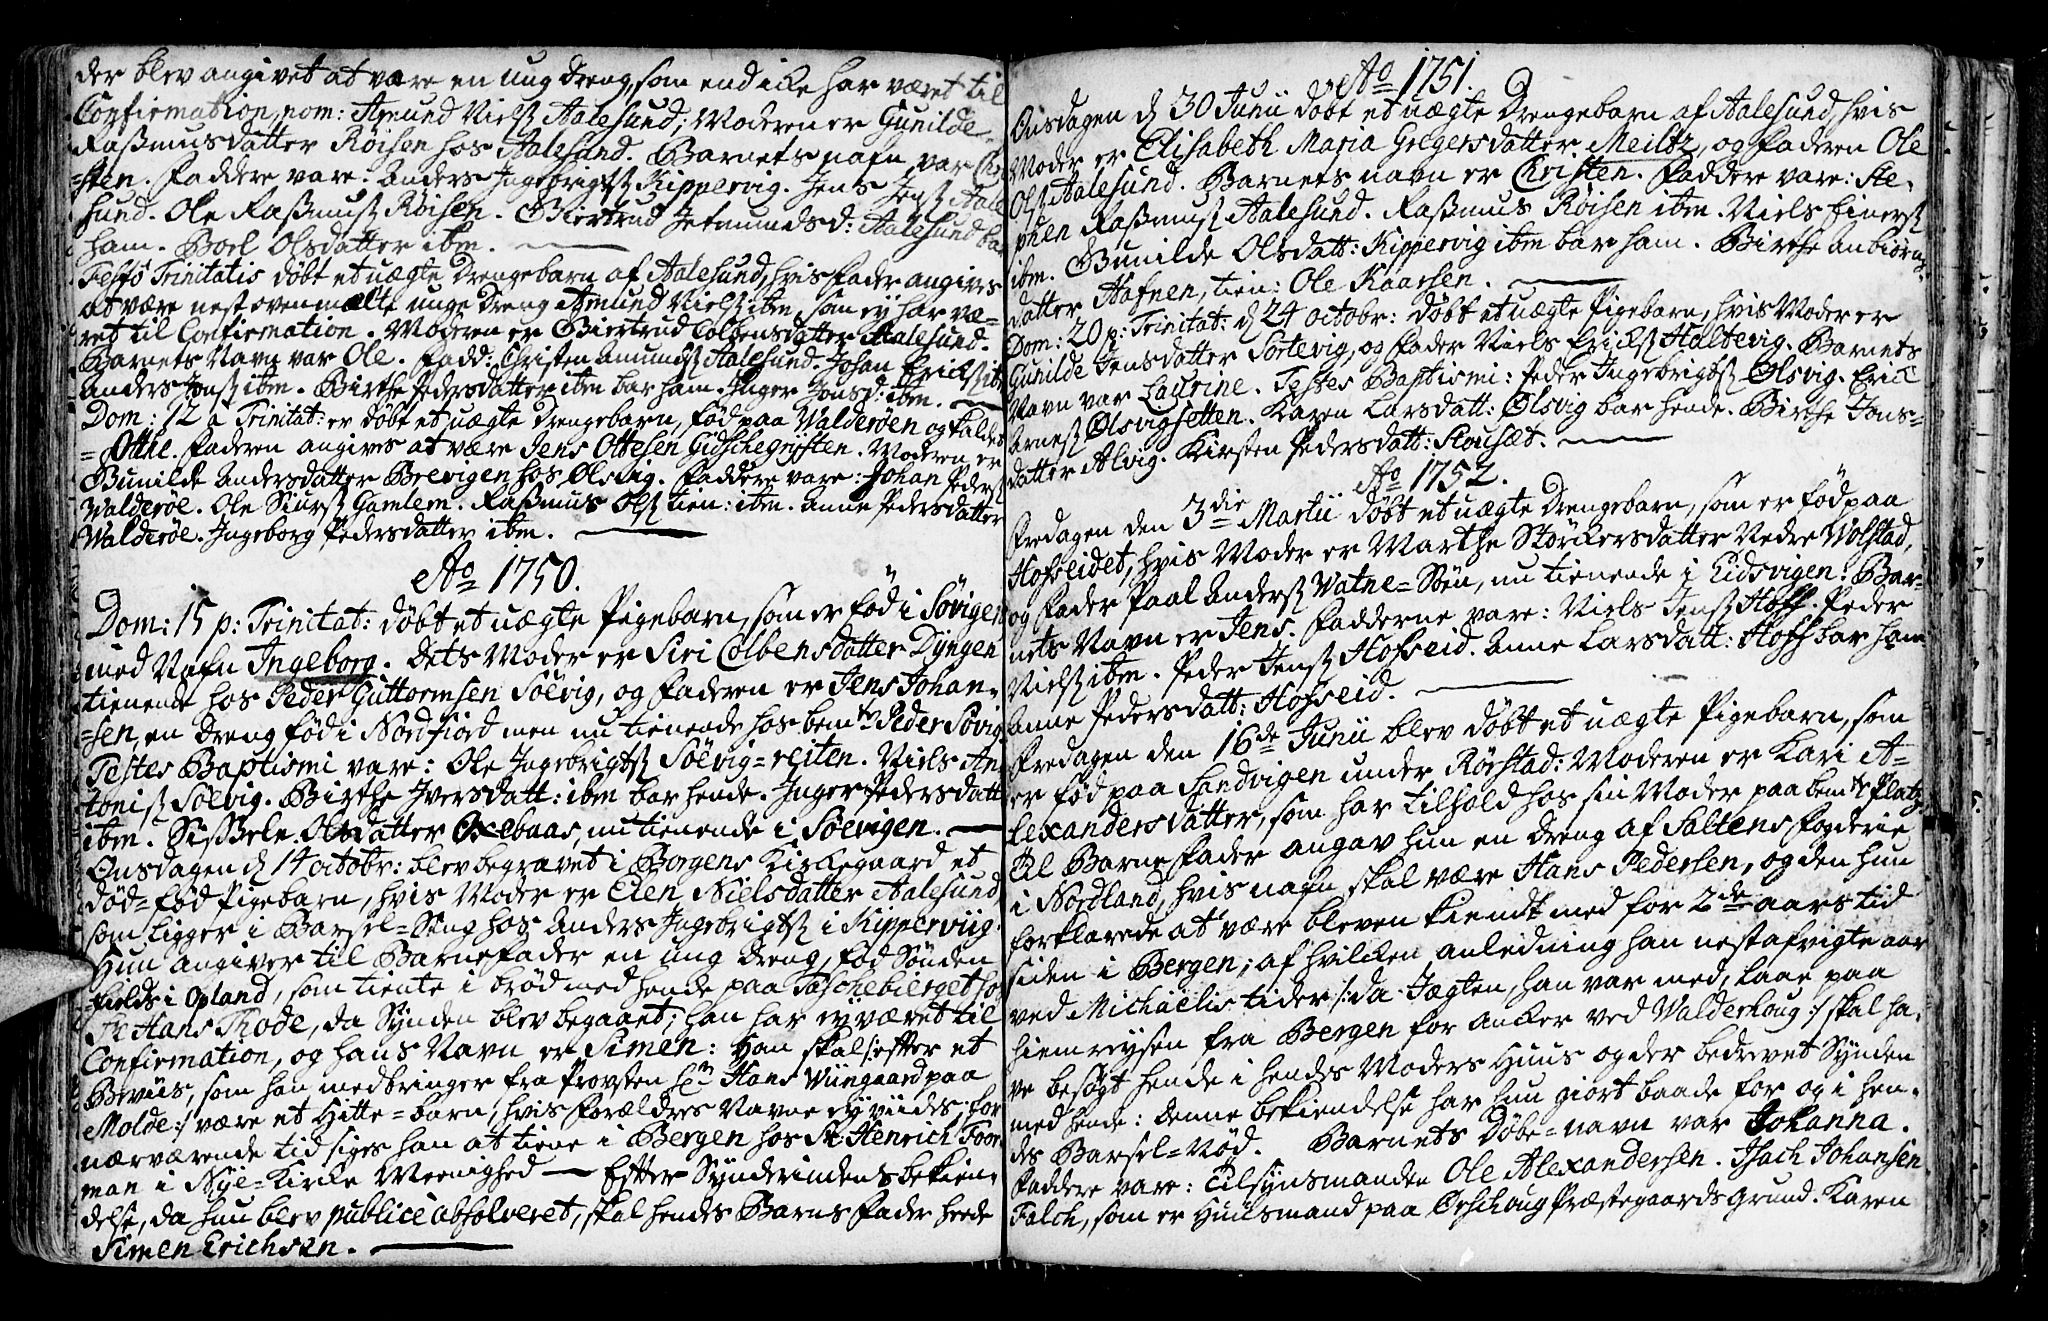 der blev angivet at være en ung dreng, som end icke har været til
Confirmation, nom: Amund Nielsß Aalesund; Moderen er Gunilde
Raßmusdatter Röisen hos Aalesund. Barnets nafn var Chri
=sten. Faddere vare: Anders Ingebrigtsß Kippervig. Jens Jensß Aale
sund. Ole Raßmusß Röisen. Giertrud Jetmundsd: Aalesund bar
ham. Boel Olsdatter ibm.
Festo Trinitatis döbt et uægte Drengebarn af Aalesund, hvis Fader angives
at være nest ovenmælte unge Dreng Amund Nielsß ibm, som ey har væ=
ret til Confirmation. Moderen er Giertrud Colbensdatter Aalesund.
Barnets Navn var Ole. Fadd: Christen Amundsß Aalesund. Johan Ericksß ibm
Anders Jonsß ibm. Birthe Pedersdatter ibm bar ham. Inger Jonsd: ibm.
Dom: 12 a Trinitat: er döbt et uægte Drengebarn, föd paa Walderöen og kaldes
=Otthe. Faderen angives at være Jens Ottesen Gidschegrÿften. Moderen er
Gunilde Andersdatter Brevigen hos Ölsvig. Faddere vare: Johan Pedersß
Walderöe. Ole Siursß Gamlem. Raßmus Olsß tien: ibm. Anne Pedersdatter
Walderöe. Ingeborg Pedersdatter ibm.
Ao 1750.
Dom: 15 p: Trinitat: döbt et uægte Pigebarn, som er föd i Sövigen
med Nafn Ingeborg. Dets Moder er Siri Colbensdatter Dyngen
tienende hos Peder Guttormsen Söevig, og Faderen er Jens Johan=
=sen, en Dreng föd i Nordfiord men nu tienende hos bemte Peder Sövig.
Testes Baptismi vare: Ole Ingebrigtsß Söevig=reiten. Niels An
tonisß Söevig. Birthe Iversdatt: ibm bar hende. Inger Pedersdatt
ibm. Sißele Olsdatter Oxebaas, nu tienende i Söevigen.
Onsdagen d 14 octobr: blev begravet i Borgens Kirkegaard et
död=föd Pigebarn, hvis Moder er Elen Nielsdatter Aalesund,
som ligger i Barsel=Seng hos Anders Ingebrigtsß i Kipperviig.
Hun angiver til Barnefader en ung Dreng, föd Sönden
fields i Opland, som tiente i bröd med hende paa Taschebierget hos
Sr Hans Thode, da Synden blev begaaet; han har ey været til
Confirmation, og hans Navn er Simen: Han skal /: efter et
Beviis, som han medbringer fra Provsten Hr Hans Wiingaard paa
Molde :/ være et Hitte=barn, hvis Forældres Navne ey viides; for
nærværende tid siges han at tiene i Bergen hos Sr Henrich Foor
man i Nye=Kirke Meenighed — Efter Synderindens bekien=
delse, da hun blev publice absolveret, skal hendes Barns Fader heede
Simen Erichsen.
Ao 1751.
Onsdagen d 30 Junii döbt et uægte Drengebarn af Aalesund, hvis
Moder er Elisabeth Maria Gregersdatter Meiltz, og Faderen Ole
Olsß Aalesund. Barnets navn er Christen. Faddere vare: Ste=
phen Raßmusß Aalesund. Raßmus Röisen ibm. Niels Einersß
ibm. Gunilde Olsdatt: Kippervig ibm bar ham. Birthe Anbiörns
datter Hafnen, tien: Ole Kaarsen.
Dom: 20 p: Trinitat: d 24 octobr: döbt et uægte Pigebarn, hvis Moder er
Gunilde Jensdatter Sortevig, og Fader Niels Ericksß Haltevig. Barnets
Navn var Laurine. Testes Baptismi: Peder Ingebrigtsß Ölsvig. Erick
Arnesß Ölsvigsetten. Karen Larsdatt: Ölsvig bar hende. Birthe Jons=
datter Alvig. Kirsten Pedersdatt: Stousæt.
Ao 1752.
Fredagen den 3die Martii döbt et uægte Drengebarn, som er föd paa
Hofseidet, hvis Moder er Marthe Störckersdatter Nedre Wolstad,
og Fader Paal Andersß Watne=Sön, nu tienende i Eidsvigen: Bar=
nets Navn er Jens. Fadderne vare: Niels Jensß Hoff. Peder
Nielsß ibm. Peder Jensß Hofseid. Anne Larsdatt: Hoff bar ham.
Anne Pedersdatt: Hofseid.
Fredagen den 16de Junii blev döbt et uægte Pigebarn, som
er föd paa Sandvigen under Rörstad: Moderen er Kari A=
lexandersdatter, som har tilhold hos sin Moder paa bemte Platz.
Til Barnefader angav hun en Dreng af Saltens Fogderie
i Nordland, hvis nafn skal være Hans Pedersen, og den hun
forklarede at være bleven kiendt med for 2de aars tid
siden i Bergen; af hvilcken anledning han nestafvigte aar
ved Michaëlis tider /: da Jægten, han var med, laae paa
hiemreysen fra Bergen for ancker ved Walderhoug :/ skal ha=
ve besögt hende i hendes Moders Huus og der bedrevet Synden
med hende: denne bekiendelse har hun giort baade for og i hen=
des Barsel=Nöd. Barnets Döbe=navn var Johanna.
Faddere vare: Tilsynsmanden Ole Alexandersen. Isach Johansen
Falch, som er Huusmand paa Örschoug Præstegaards Grund. Karen